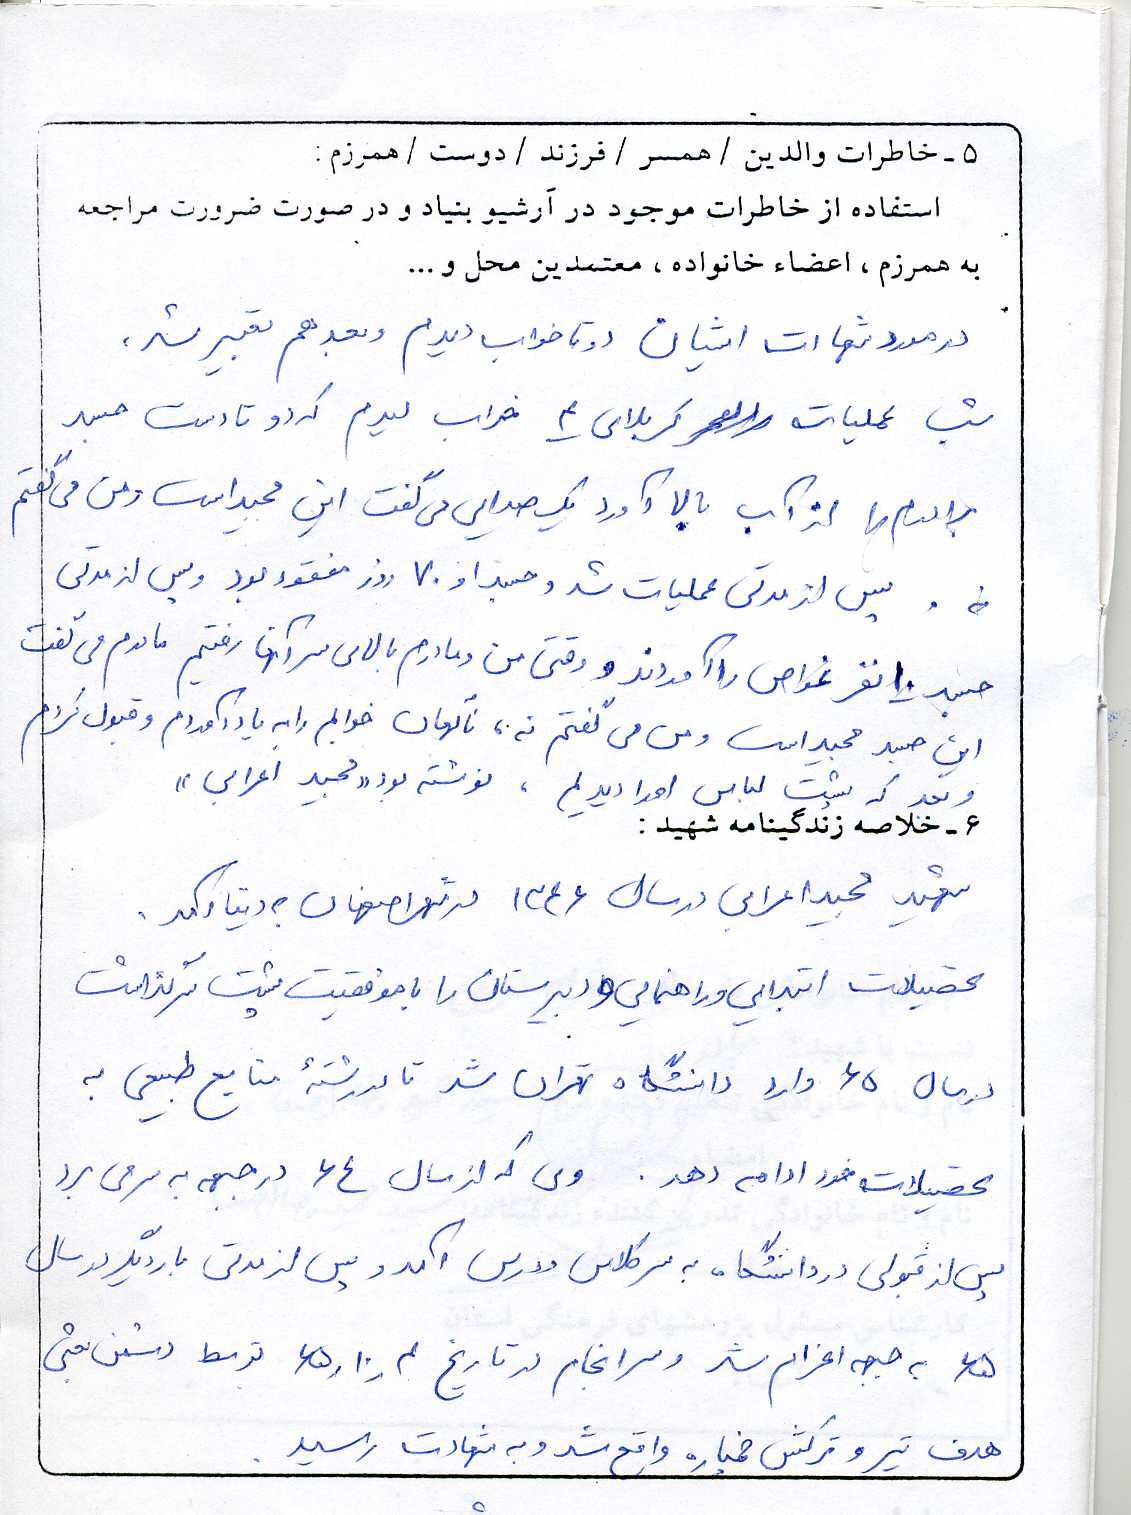 ۵ ـ خاطرات والدین / همسر / فرزند / دوست / همرزم :
استفاده از خاطرات موجود در آرشیو بنیاد و در صورت ضرورت مراجعه
به همرزم ، اعضاء خانواده ، معتمدین محل و ...
در مورد شهادت ایشان دو تا خواب دیدم و بعد هم تعبیر شد .
شب عملیات کربلای ۴ خواب دیدم که دو تا دست جسد
برادرم را از آب بالا آورد یک صدایی می گفت این مجید است و من می گفتم
نه . پس از مدتی عملیات شد و جسد او ۷۰ روز مفقود بود و پس از مدتی
جسد ۱۰ نفر غواص را آوردند و وقتی من و مادرم بالای سر آنها رفتیم مادرم می گفت
این جسد مجید است و من می گفتم نه ، ناگهان خوابم را به یاد آوردم و قبول کردم
و بعد که پشت لباس او را دیدیم ، نوشته بود «مجید اعرابی»
۶ ـ خلاصه زندگینامه شهید :
شهید مجید اعرابی در سال ۱۳۴۶ در شهر اصفهان به دنیا آمد .
تحصیلات ابتدایی و راهنمایی و دبیرستان را با موفقیت پشت سر گذاشت
در سال ۶۵ وارد دانشگاه تهران شد تا در رشتهٔ منابع طبیعی به
تحصیلات خود ادامه دهد . وی که از سال ۶۴ در جبهه به سر می برد
پس از قبولی در دانشگاه ، به سر کلاس درس آمد و پس از مدتی بار دیگر در سال
۶۵ به جبهه اعزام شد و سرانجام در تاریخ ۴ر۱۰ر۶۵ توسط دشمن بعثی
هدف تیر و ترکش خمپاره واقع شد و به شهادت رسید .